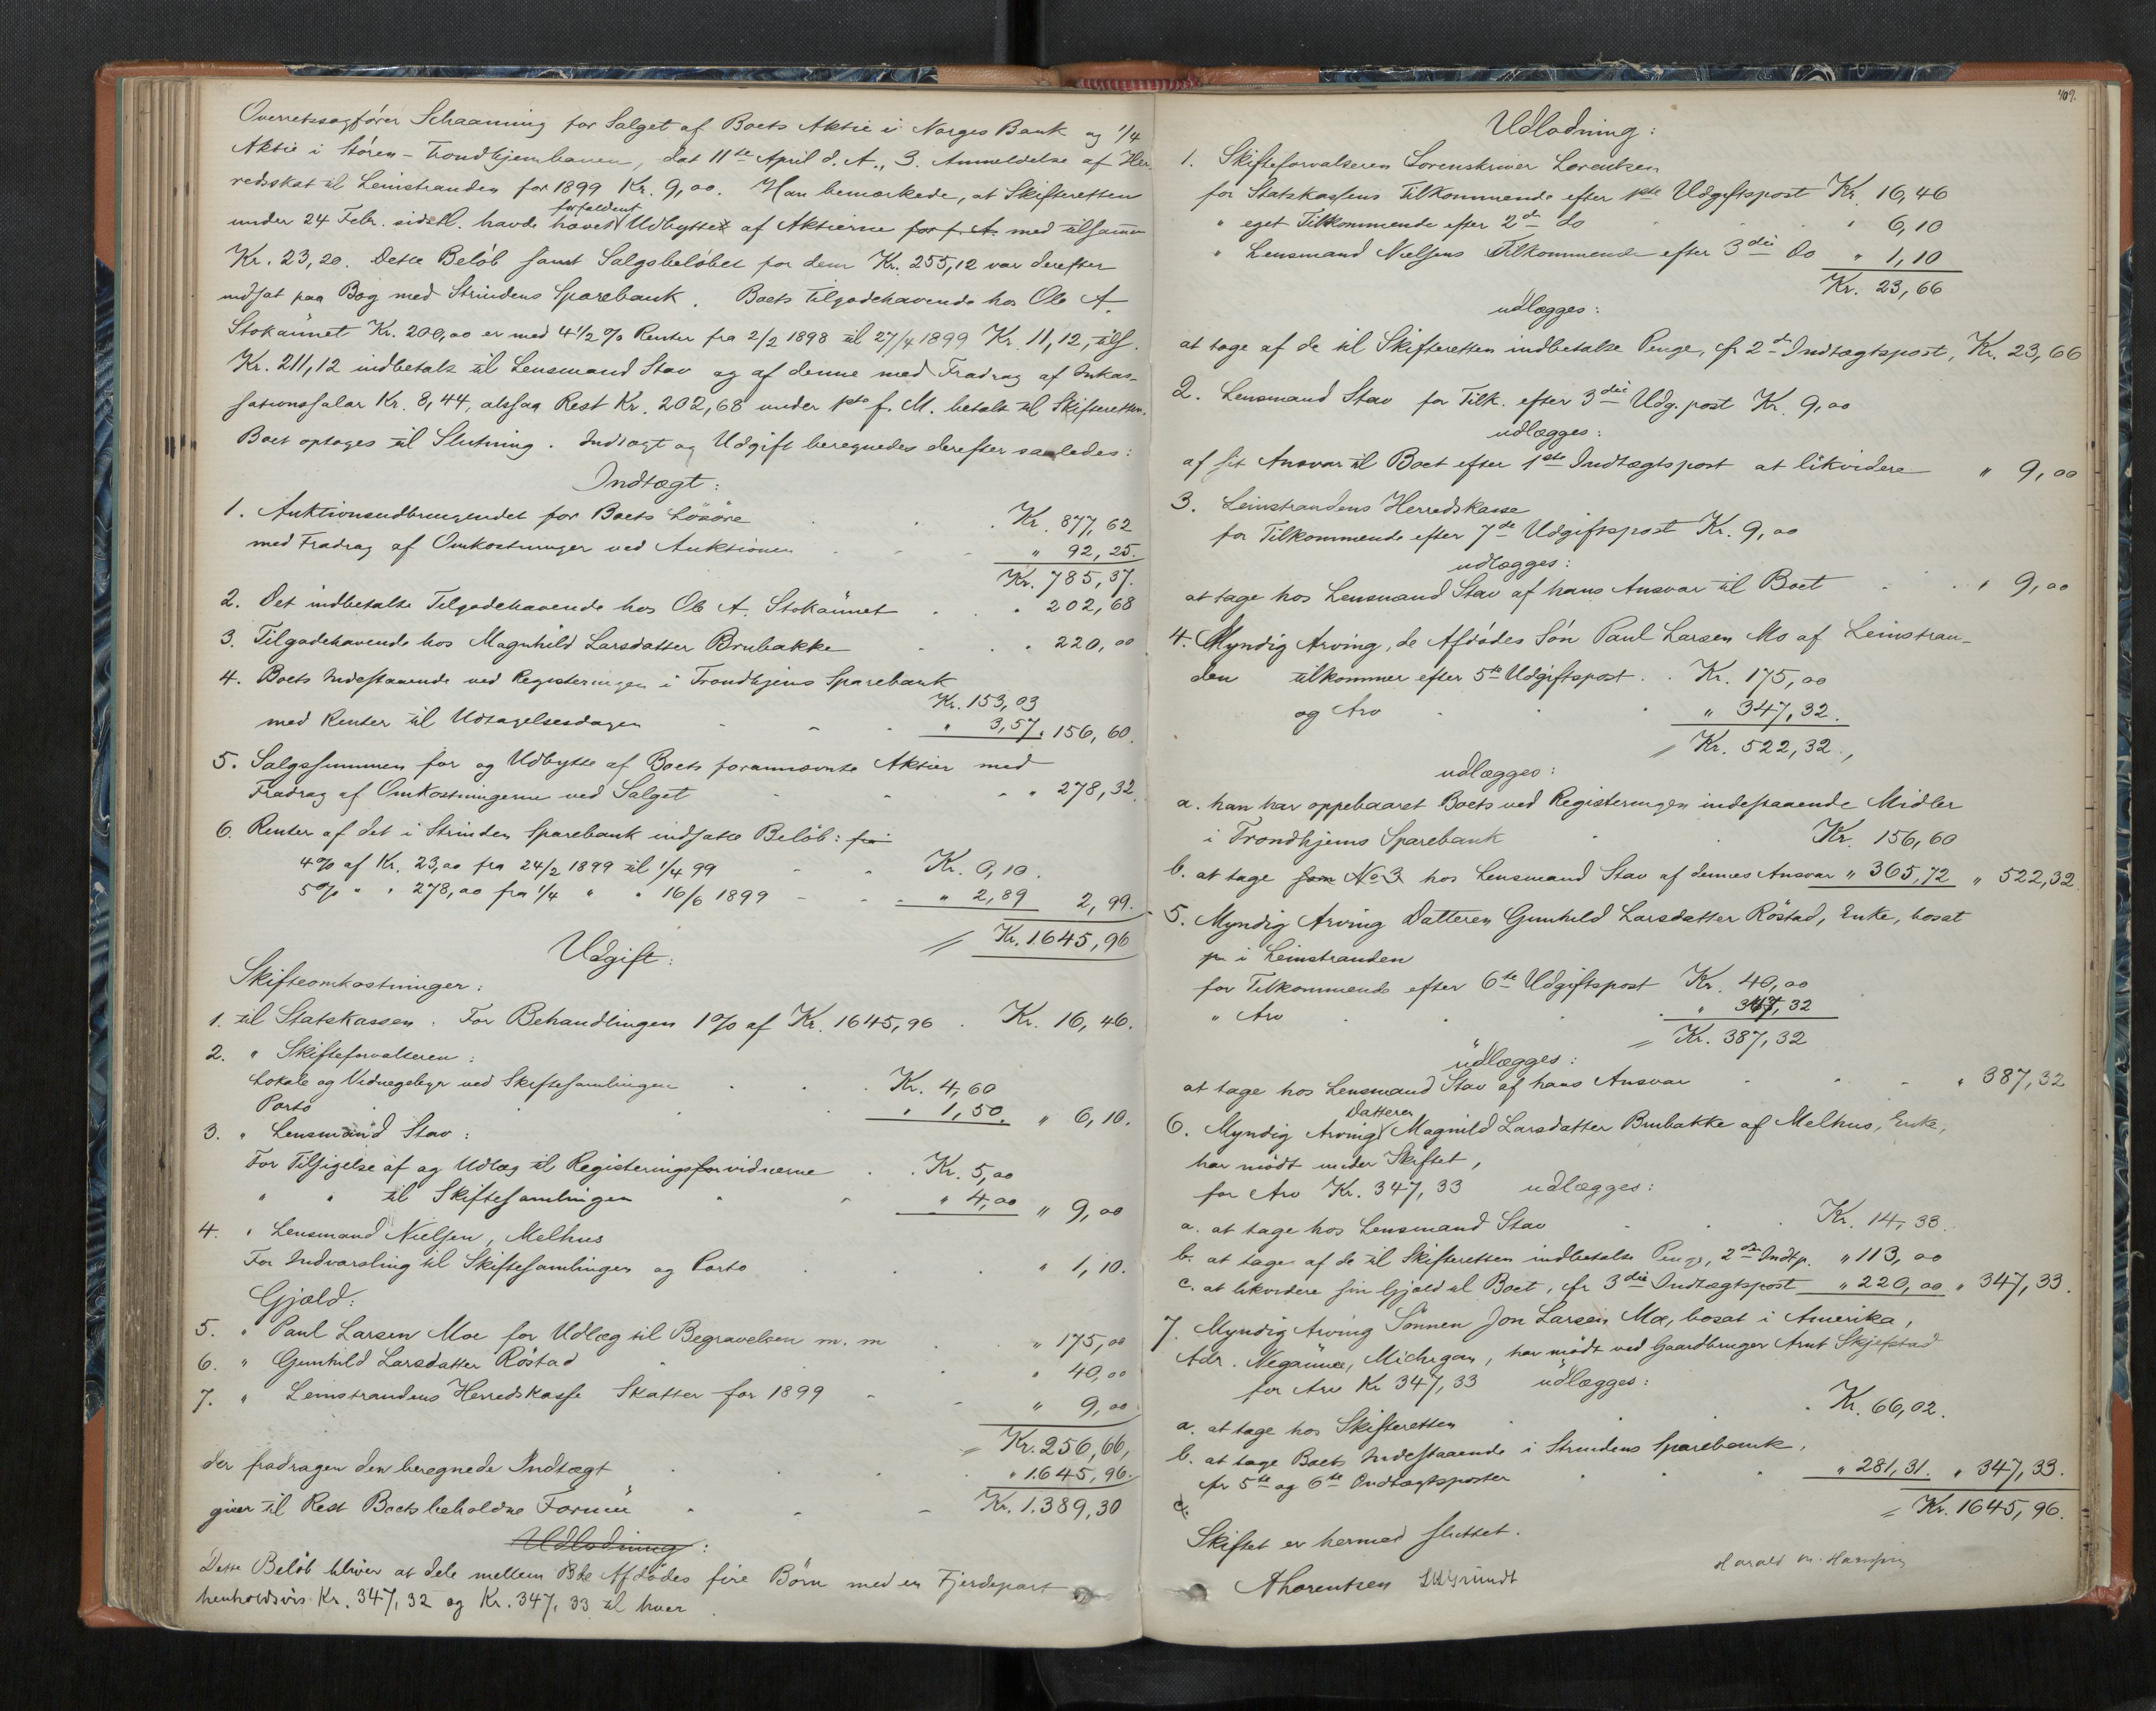 Overretssagfører Schaanning for Salget af Boets Aktie i Norges Bank og 1/4
Aktie i Støren-Trondhjembanen, dat 11te April d. A., 3. Anmeldelse af Her-
redsskat til Leinstranden for 1899 Kr. 9,00. Han bemærkede, at Skifteretten
forfaldent
under 24 Febr. sidstl. havde hævet Udbyttet af Aktierne for f. A. med tilsammen
Kr. 23,20. Dette Beløb samt Salgsbeløbet for dem Kr. 255,12 var derefter
indsat paa Bog med Strindens Sparebank. Boets Tilgodehavende hos Ole A.
Stokaunet Kr. 200,00 er med 4 1/2 % Renter fra 2/2 1898 til 27/4 1899 Kr. 11,12, tils.
Kr. 211,12 indbetalt til Lensmand Stav og af denne med Fradrag af Inkas-
sationssalar Kr. 8,44, altsaa Rest Kr. 202,68 under 1ste f. M. betalt til Skifteretten.
Boet optoges til Slutning. Indtægt og Udgift beregnedes derefter saaledes:
Indtægt:
1. Auktionsudbringendet for Boets Løsøre Kr. 877,62
med Fradrag af Omkostninger ved Auktionen " 92,25.
Kr. 785,37.
2. Det indbetalte Tilgodehavende hos Ole A. Stokaunet " 202,68
3. Tilgodehavende hos Magnhild Larsdatter Brubakke " 220,00
4. Boets Indestaaende ved Registeringen i Trondhjems Sparebank
Kr. 153,03
med Renter til Udtagelsesdagen " 3,57. " 156,60.
5. Salgssummen for og Udbytte af Boets forannævnte Aktier med
Fradrag af Omkostningerne ved Salget " 278,32.
6. Renter af det i Strinden Sparebank indsatte Beløb: fra
4% af Kr. 23,00 fra 24/2 1899 til 1/4 99 Kr. 0,10.
5% " " 278,00 fra 1/4 " " 16/6 1899 " 2,89 2,99.
Kr. 1645,96
Udgift:
Skifteomkostninger:
1. til Statskassen. For Behandlingen 1% af Kr. 1645,96 Kr. 16,46.
2. " Skifteforvalteren:
Lokale og Vidnegebyr ved Skiftesamlingen Kr. 4,60
Porto " 1,50. " 6,10.
3. " Lensmand Stav:
For Tilsigelse af og Udlæg til Registeringsforvidnerne Kr. 5,00
" " til Skiftesamlingen " 4,00 " 9,00
4. " Lensmand Nielsen, Melhus
For Indvarsling til Skiftesamlingen og Porto " 1,10.
Gjæld:
5. " Paul Larsen Moe for Udlæg til Begravelsen m. m " 175,00
6. " Gunhild Larsdatter Røstad " 40,00
7. " Leinstrandens Herredskasse Skatter for 1899 " 9,00
Kr. 256,66,
der fradragen den beregnede Indtægt " 1645,96.
giver til Rest Boets beholdne Formue Kr. 1.389,30
Udlodning:
Dette Beløb bliver at dele mellem de Afdødes fire Børn med en Fjerdepart
henholdsvis Kr. 347,32 og Kr. 347,33 til hver.
409.
Udlodning:
1. Skifteforvalteren Sorenskriver Lorentzen
for Statskassens Tilkommende efter 1ste Udgiftspost Kr. 16,46
" eget Tilkommende efter 2den do " 6,10
" Lensmand Nielsens Tilkommende efter 3die do " 1,10
Kr. 23,66
udlægges:
at tage af de til Skifteretten indbetalte Penge, cfr 2den Indtægtspost, Kr. 23,66
2. Lensmand Stav for Tilk. efter 3die Udg. post Kr. 9,00
udlægges:
af sit Ansvar til Boet efter 1ste Indtægtspost at likvidere " 9,00
3. Leinstrandens Herredskasse
for Tilkommende efter 7de Udgiftspost Kr. 9,00
udlægges:
at tage hos Lensmand Stav af hans Ansvar til Boet " 9,00
4. Myndig Arving, de Afdødes Søn Paul Larsen Mo af Leinstran-
den tilkommer efter 5te Udgiftspost. Kr. 175,00
og Arv " 347,32.
Kr. 522,32.,
udlægges:
a. han har oppebaaret Boets ved Registeringen indestaaende Midler
i Trondhjems Sparebank Kr. 156,60
b. at tage som No 3 hos Lensmand Stav af dennes Ansvar " 365,72 " 522,32.
5. Myndig Arving Datteren Gunhild Larsdatter Røstad, Enke, bosat
i Leinstranden
for Tilkommende efter 6te Udgiftspost Kr. 40,00
" Arv " 347,32
Kr. 387,32
udlægges:
at tage hos Lensmand Stav af hans Ansvar " 387,32
Datteren
6. Myndig Arving Magnild Larsdatter Brubakke af Melhus, Enke,
har mødt under Skiftet,
for Arv Kr. 347,33 udlægges:
a. at tage hos Lensmand Stav Kr. 14,33.
b. at tage af de til Skifteretten indbetalte Penge, 2den Indtp. " 113,00
c. at likvidere sin Gjæld til Boet, cfr 3die Indtægtspost " 220,00 " 347,33.
7. Myndig Arving Sønnen Jon Larsen Moe, bosat i Amerika,
Adr. Negaunee, Michigan, har mødt ved Gaardbruger Arnt Skjefstad
for Arv Kr 347,33 udlægges:
a. at tage hos Skifteretten Kr. 66,02.
b. at tage Boets Indestaaende i Strindens Sparebank,
cfr 5te og 6te Indtægtsposter " 281,31. " 347,33.
Kr. 1645,96.
Skiftet er hermed sluttet.
A Lorentzen Grundt Harald